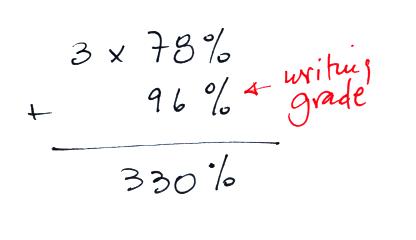 3 × 78%
+ 96% ← writing
grade
330%